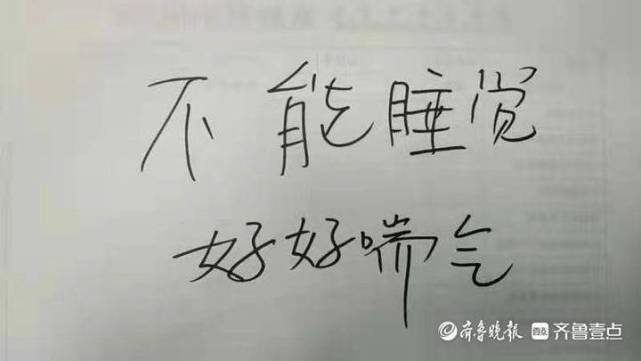 不能睡觉
好好喘气
齐鲁晚报 齐鲁壹点